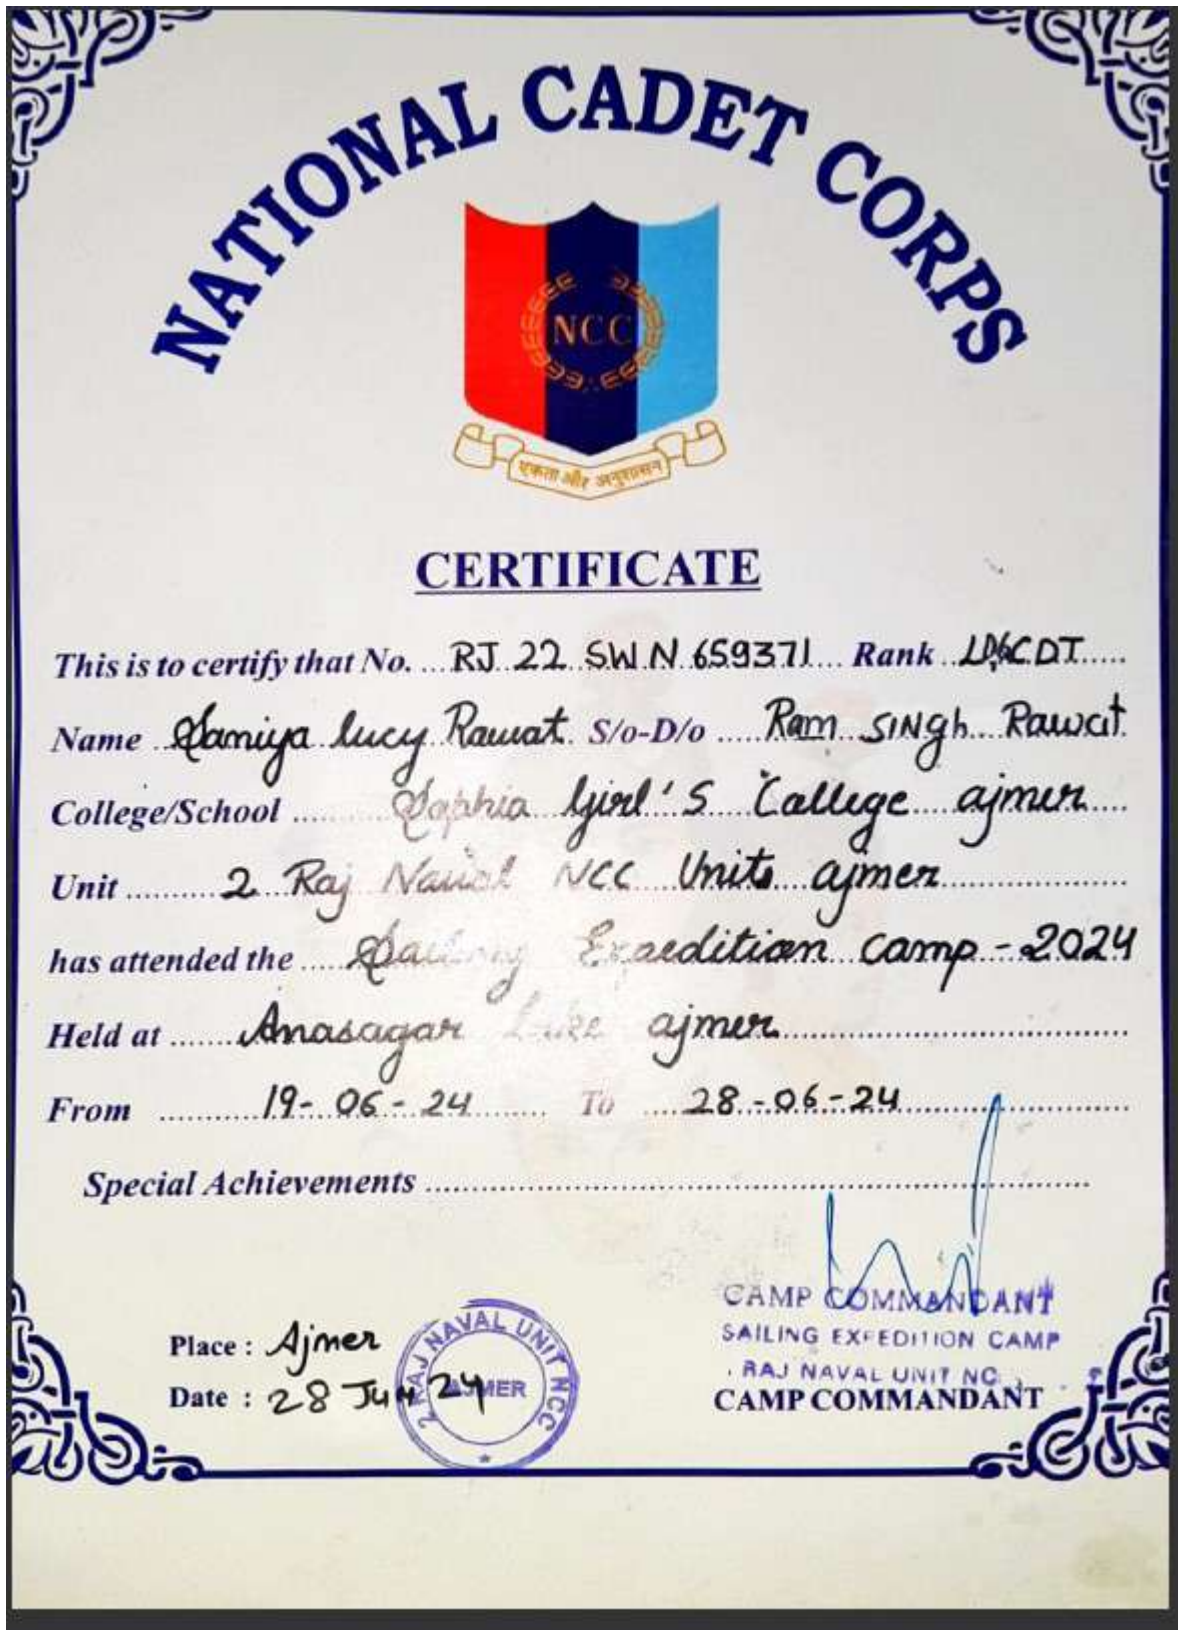 NATIONAL CADET CORPS
NCC
एकता और अनुशासन
CERTIFICATE
This is to certify that No. RJ 22 SWN 659371 Rank CDT
Name Saniya lucy Rawat S/o-D/o Ram SINgh Rawat
College/School Sophia Girl'S College ajmer
Unit 2 Raj Naval NCC Units ajmer
has attended the Sailing Expedition camp - 2024
Held at Anasagar Lake ajmer
From 19-06-24 To 28-06-24
Special Achievements
CAMP COMMANDANT
SAILING EXPEDITION CAMP
RAJ NAVAL UNIT NC
Place : Ajmer
Date : 28 Jun 24
2 RAJ NAVAL UNIT NCC
AJMER
CAMP COMMANDANT